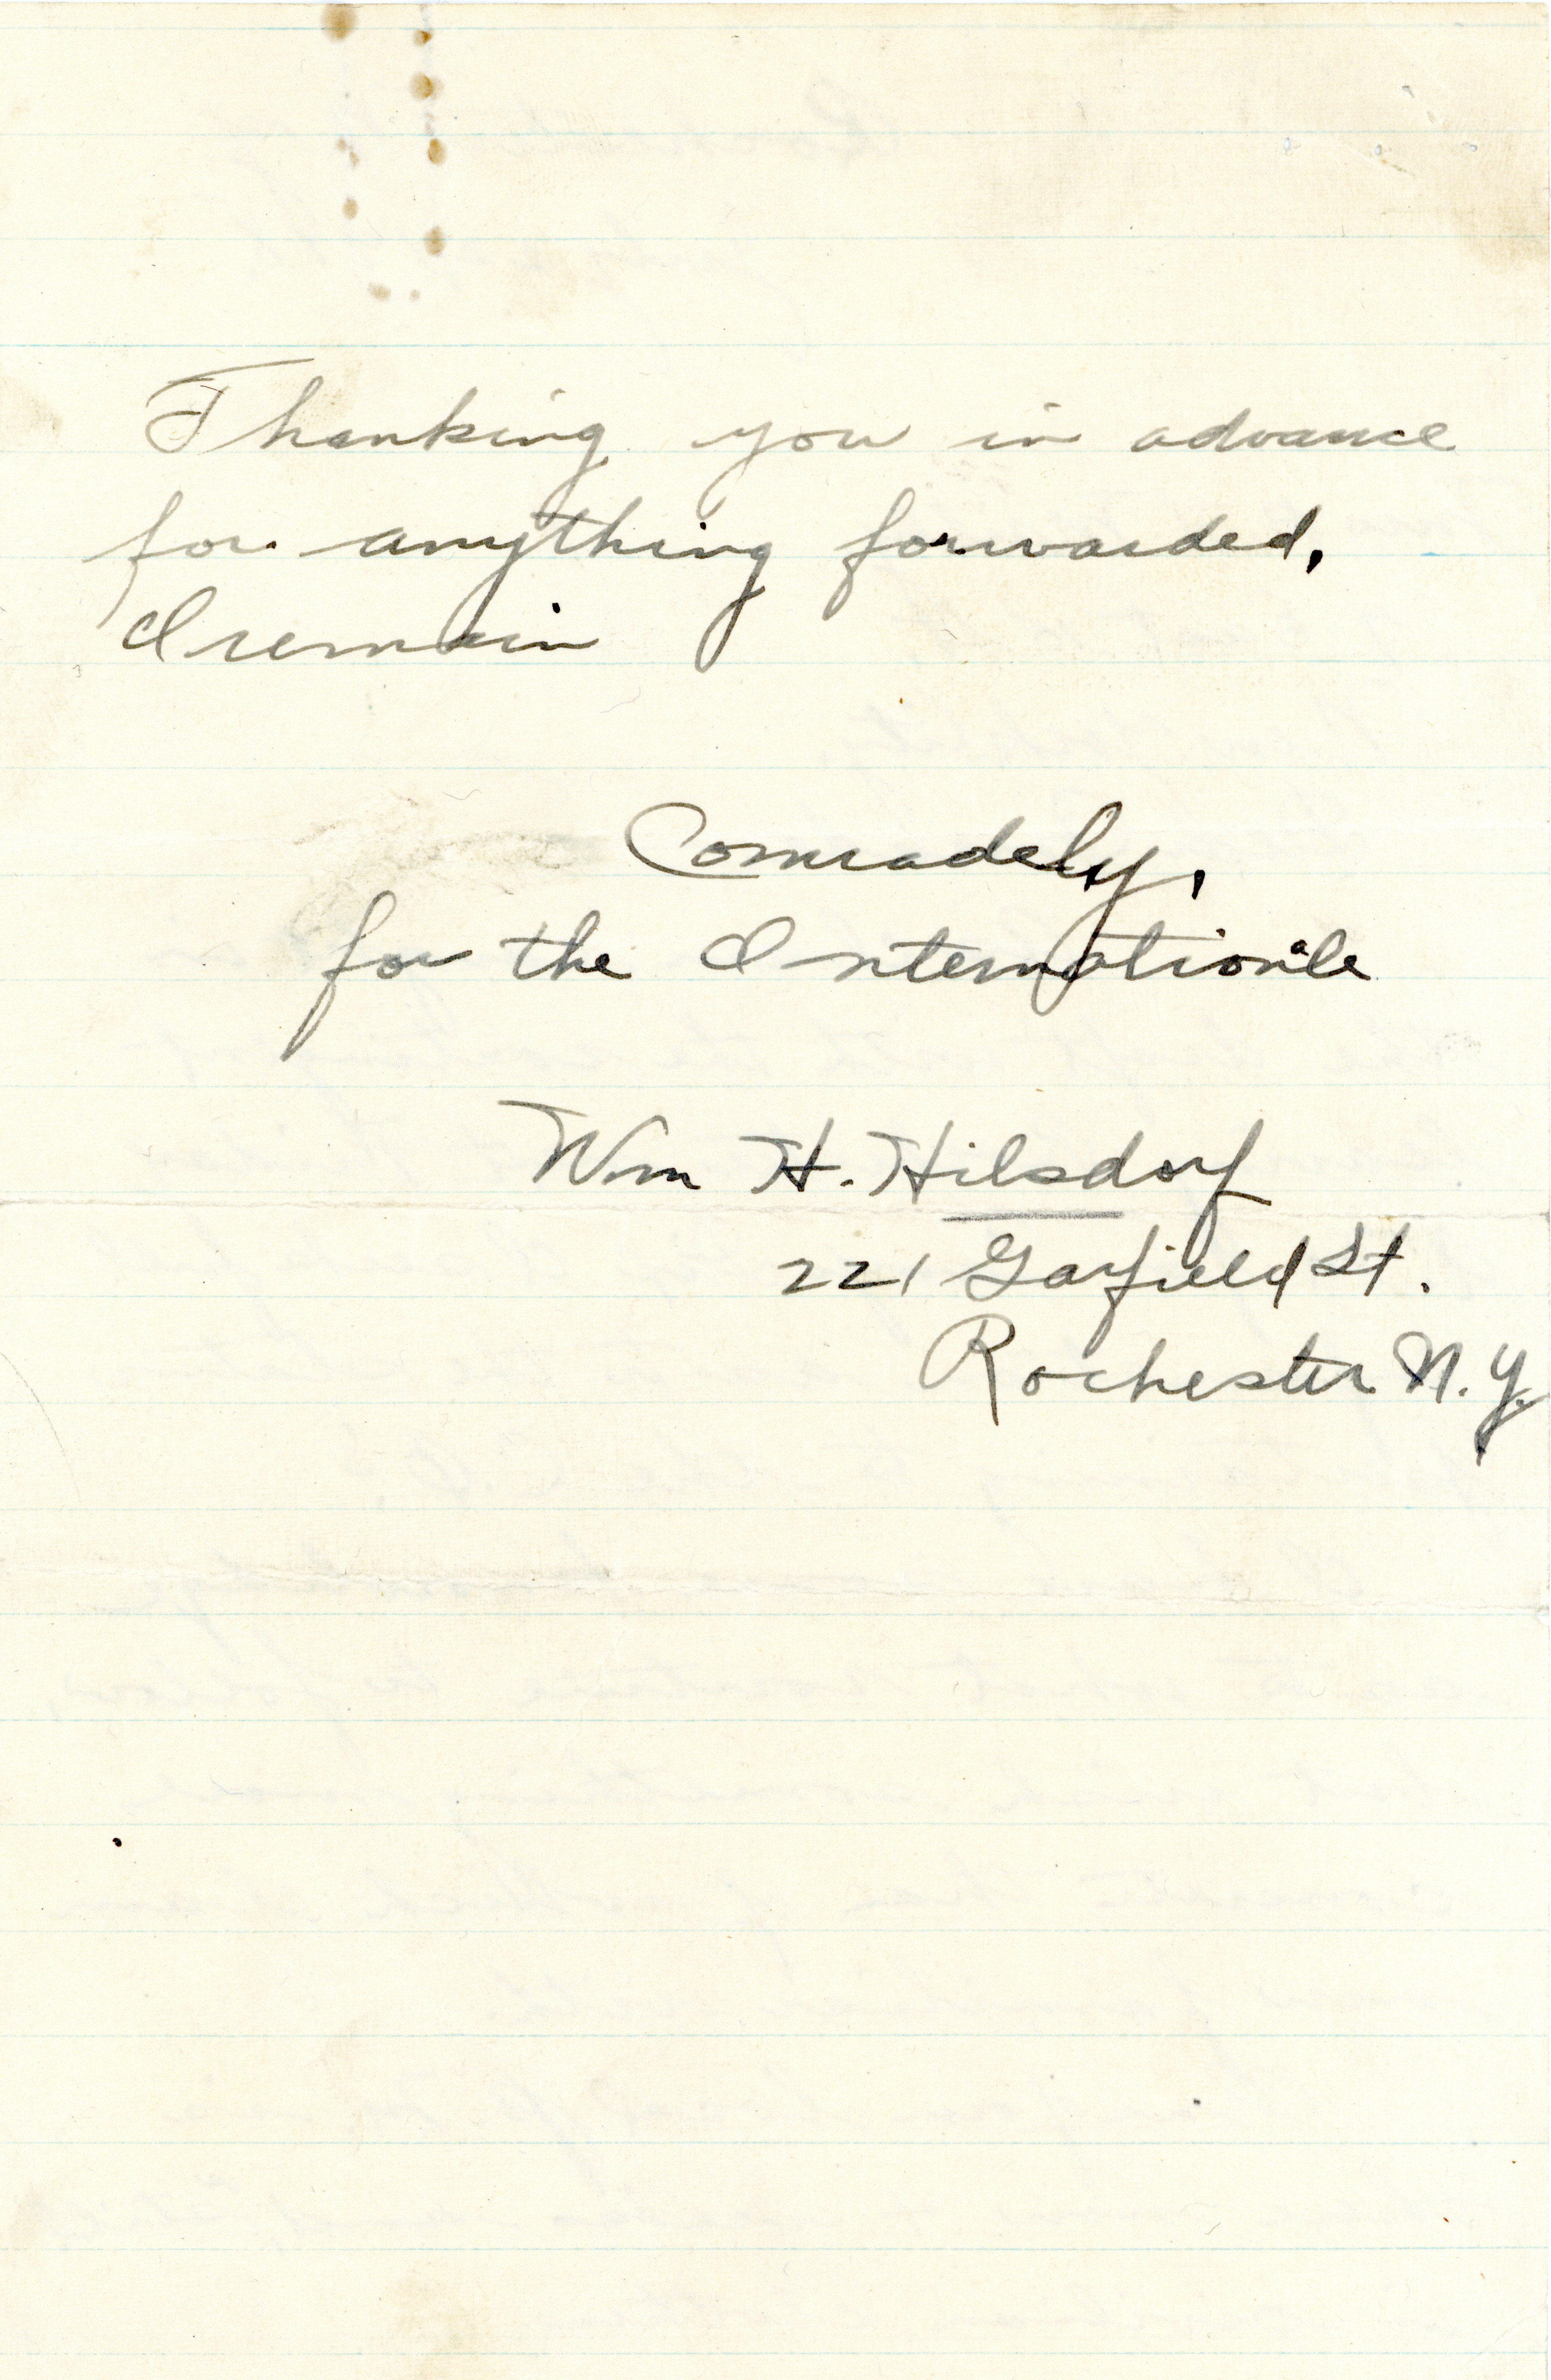 Thanking you in advance
for anything forwarded,
I remain
Comradely,
for the Internationale
Wm H. Hilsdorf
221 Garfield St.
Rochester N.Y.